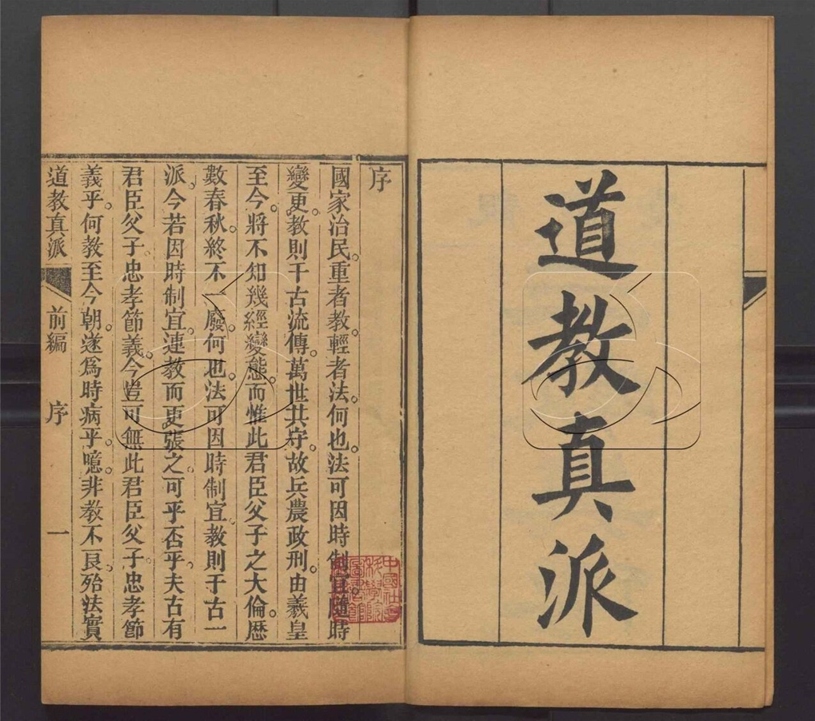 道教真派
序
國家治民。重者教。輕者法。何也。法可因時制宜。隨時
變更。教則千古流傳。萬世共守。故兵農政刑。由羲皇
至今。將不知幾經變態。而惟此君臣父子之大倫。歷
數春秋。終不一廢。何也。法可因時制宜。教則于古一
派。今若因時制宜。連教而更張之。可乎否乎。夫古有
君臣父子。忠孝節義。今豈可無此君臣父子。忠孝節
義乎。何教至今朝。遂爲時病乎。噫。非教不艮。殆法實
道教真派 前編 序 一